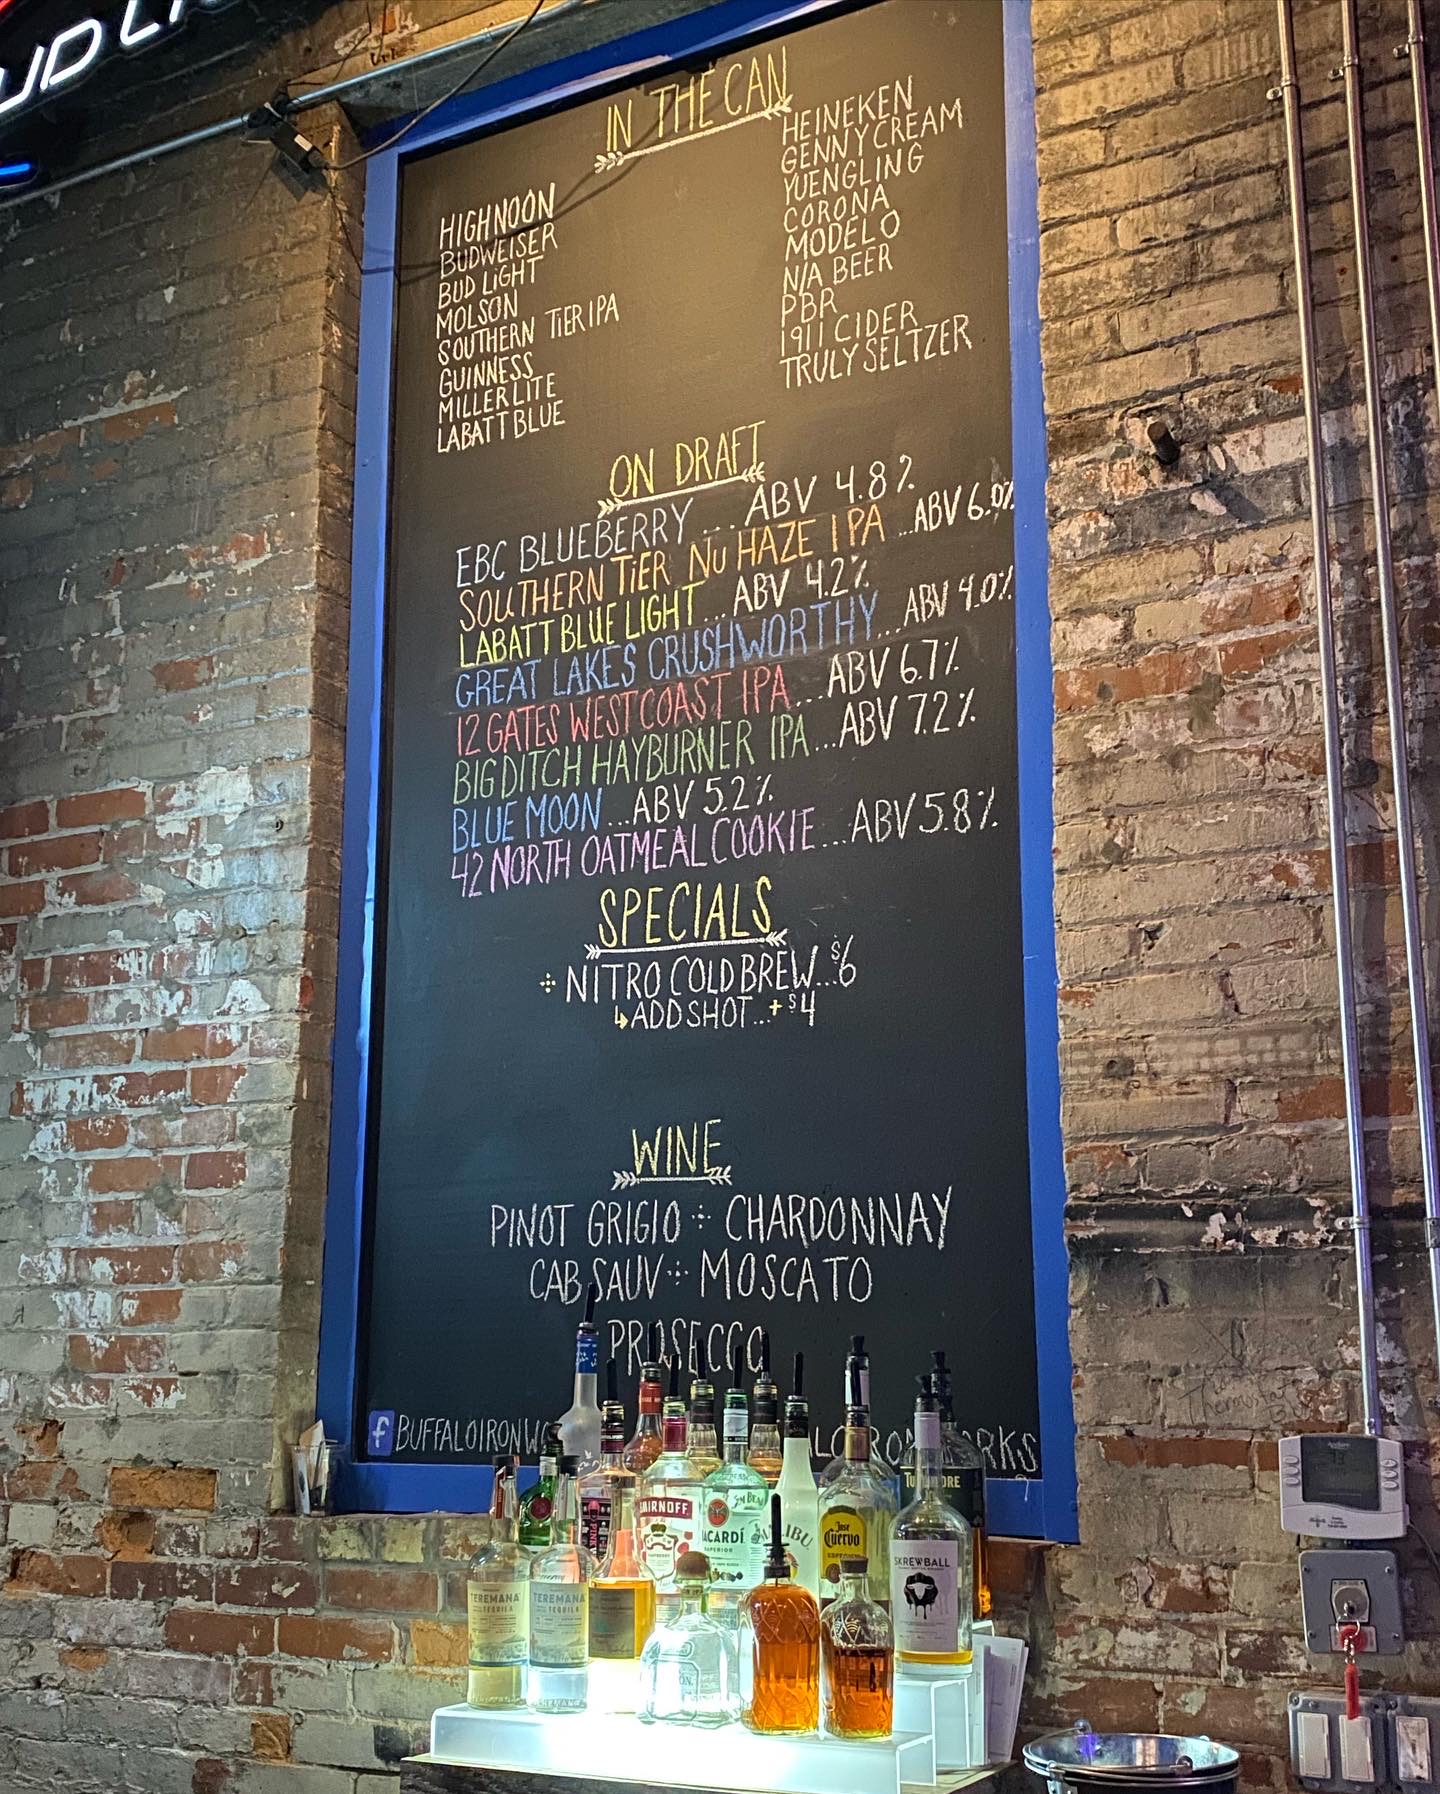 UD LI
IN THE CAN
HIGHNOON
BUDWEISER
BUD LIGHT
MOLSON
SOUTHERN TIER IPA
GUINNESS
MILLER LITE
LABATT BLUE
HEINEKEN
GENNY CREAM
YUENGLING
CORONA
MODELO
N/A BEER
PBR
1911 CIDER
TRULY SELTZER
ON DRAFT
EBC BLUEBERRY ... ABV 4.8%
SOUTHERN TIER NU HAZE IPA ... ABV 6.0%
LABATT BLUE LIGHT ... ABV 4.2%
GREAT LAKES CRUSHWORTHY ... ABV 4.0%
12 GATES WEST COAST IPA ... ABV 6.7%
BIG DITCH HAYBURNER IPA ... ABV 7.2%
BLUE MOON ... ABV 5.2%
42 NORTH OATMEAL COOKIE ... ABV 5.8%
SPECIALS
NITRO COLD BREW ... $6
ADD SHOT ... + $4
WINE
PINOT GRIGIO ÷ CHARDONNAY
CAB SAUV ÷ MOSCATO
PROSECCO
f BUFFALOIRONWO
LOIRONWORKS
SMIRNOFF
RASPBERRY
BACARDÍ
SUPERIOR
JIM BEAM
MALIBU
Jose
Cuervo
ESPECIAL
TULLAMORE
SKREWBALL
TEREMANA
TEQUILA
TEREMANA
TEQUILA
PINK